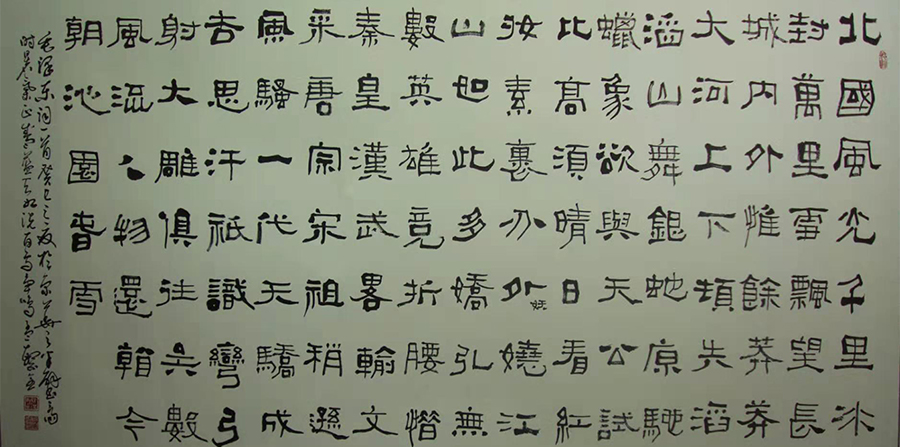 北國風光千里冰
封萬里雪飄望長
城內外惟餘莽莽
大河上下頓失滔
滔山舞銀蛇原馳
蠟象欲與天公試
比高須晴日看紅
妝素裹分外妖嬈江
山如此多嬌引無
數英雄競折腰惜
秦皇漢武畧輸文
采唐宗宋祖稍遜
風騷一代天驕成
吉思汗祗識彎弓
射大雕俱往矣數
風流人物還今
朝沁園春雪
毛澤東詞一首癸巳之夏於京華